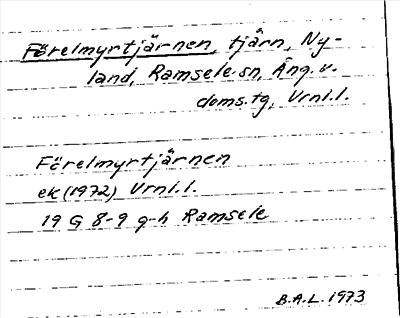 Förelmyrtjärnen, tjärn, Ny-
land, Ramsele sn, Ång. v.
doms.tg, Vrnl.l.
Förelmyrtjärnen
ek (1972) Vrnl.l.
19 G 8-9 g-h Ramsele
B.A.L. 1973